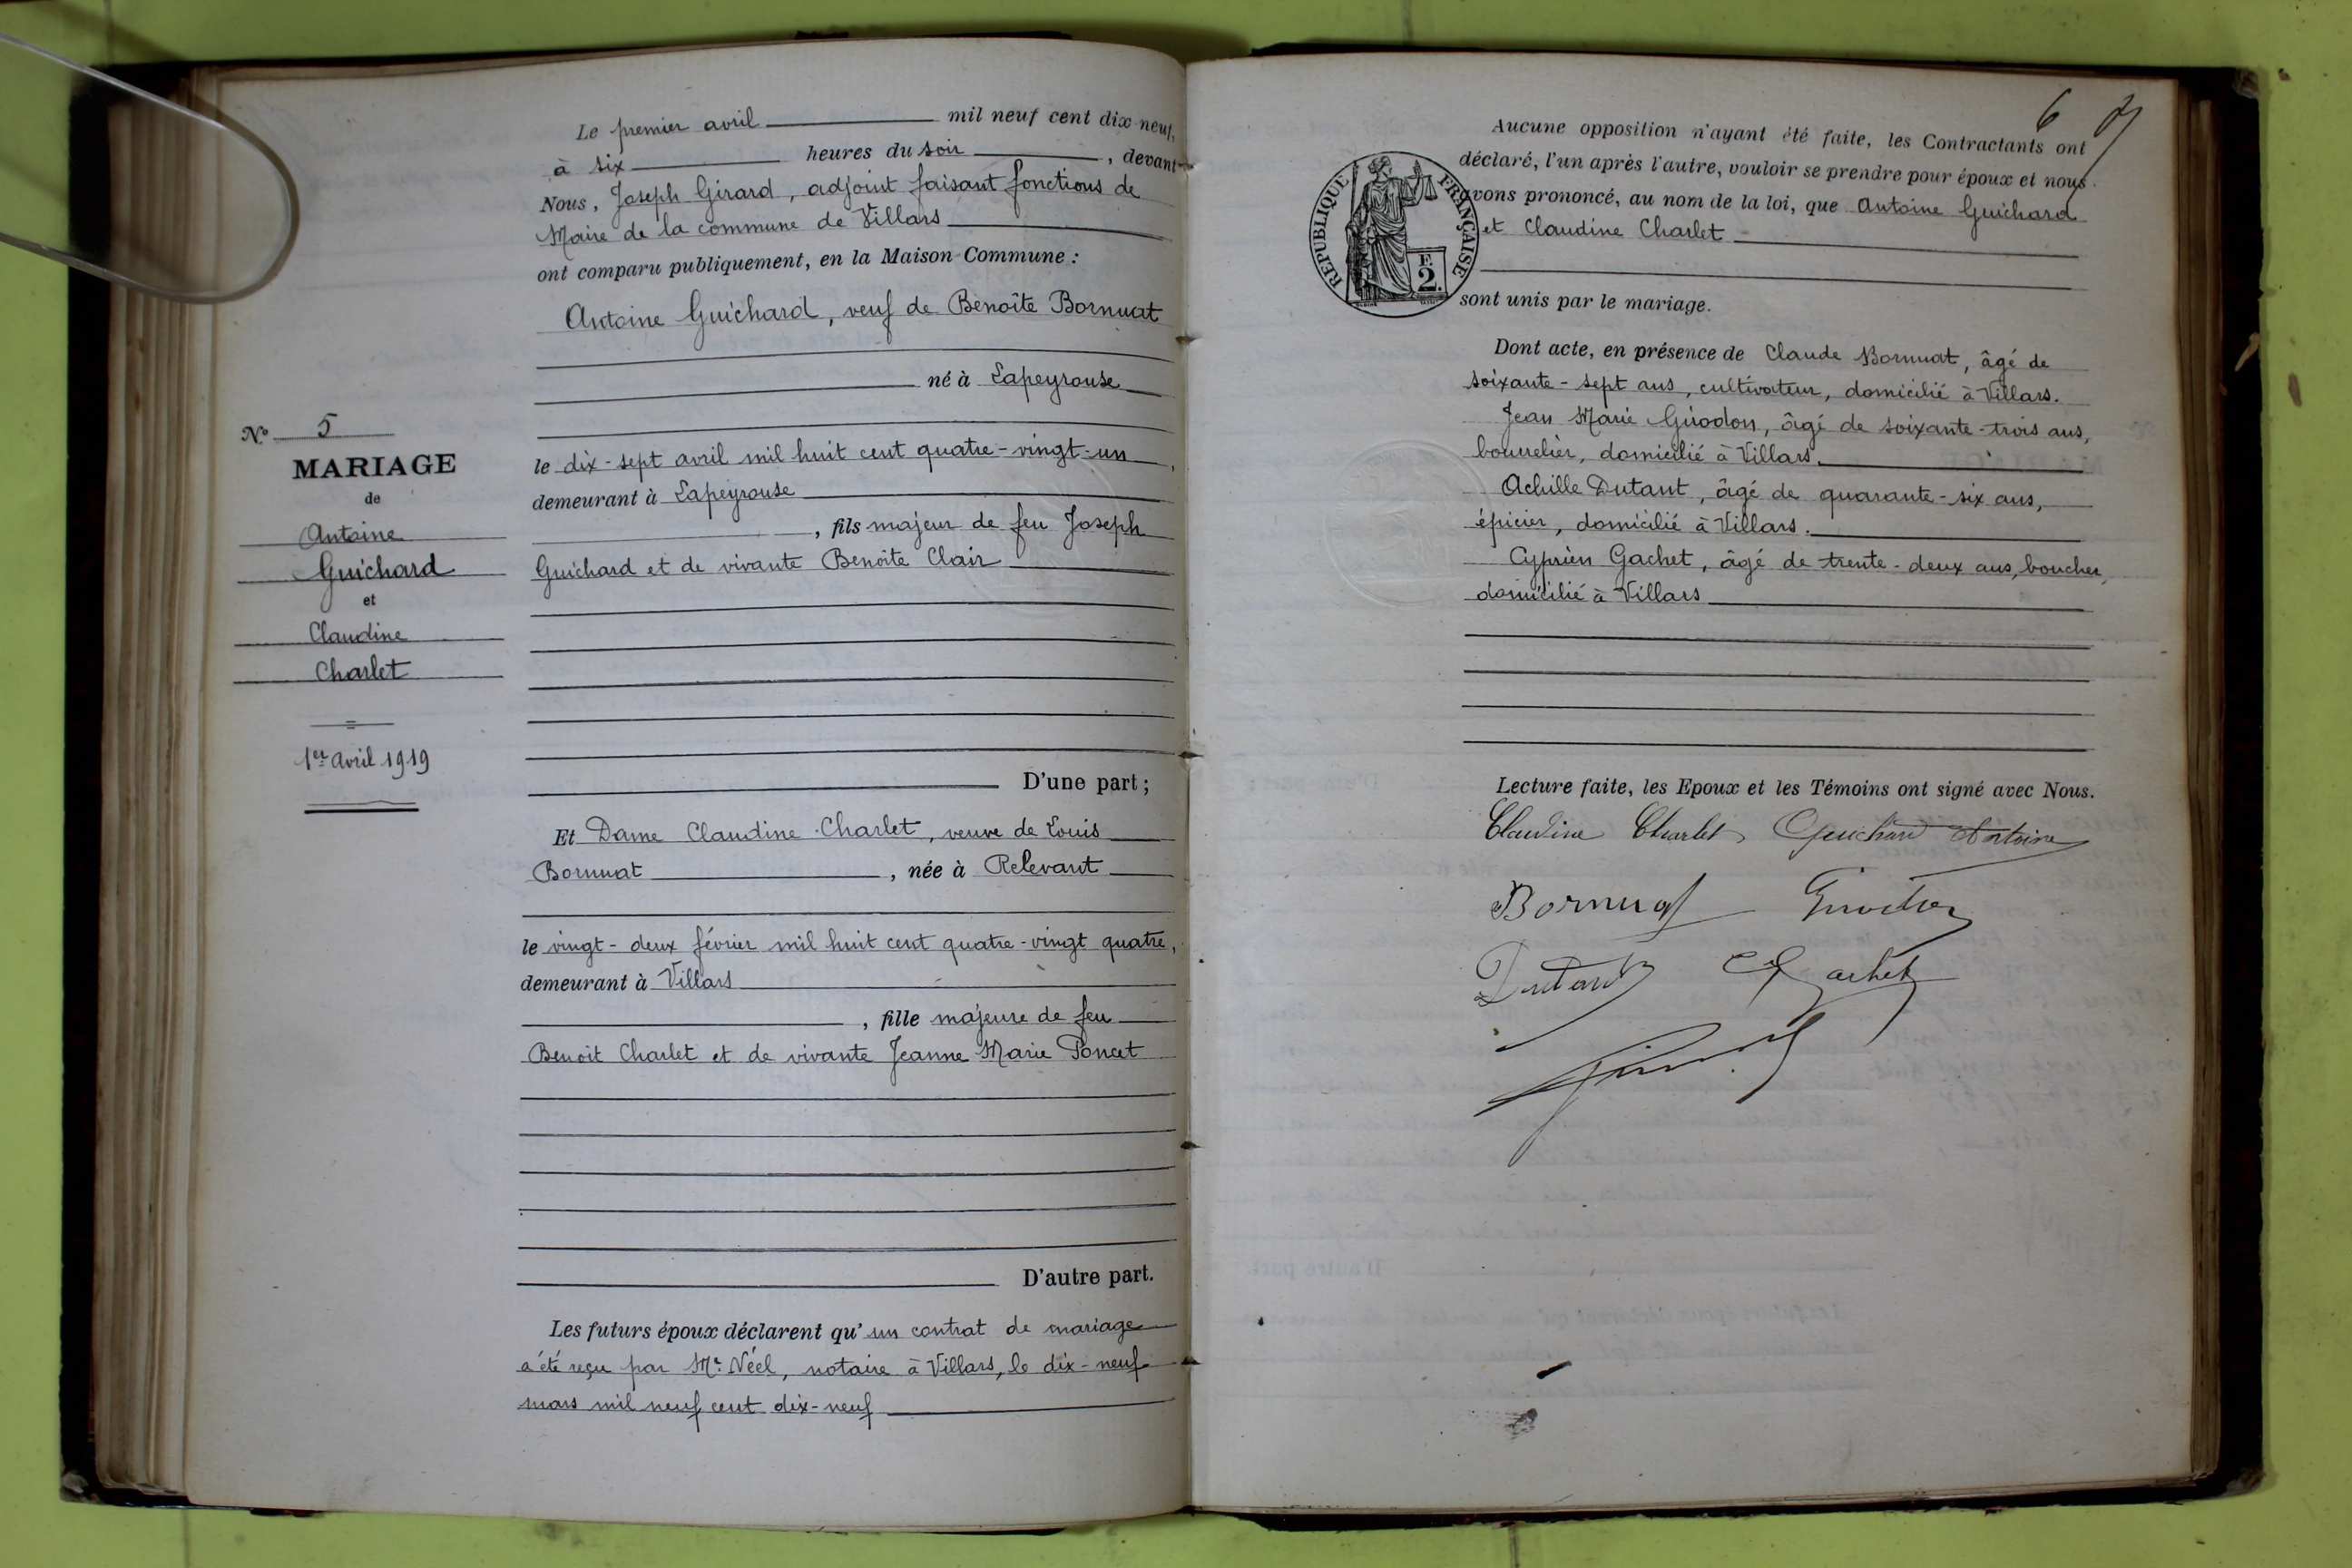 Le premier avril mil neuf cent dix neuf,
à six heures du soir, devant
Nous, Joseph Girard, adjoint faisant fonctions de
Maire de la commune de Villars
ont comparu publiquement, en la Maison Commune :
Antoine Guichard, veuf de Benoîte Bornuat
né à Lapeyrouse
le dix-sept avril mil huit cent quatre-vingt-un,
demeurant à Lapeyrouse
, fils majeur de feu Joseph
Guichard et de vivante Benoite Clair
D'une part ;
Et Dame Claudine Charlet, veuve de Louis
Bornuat, née à Relevant
le vingt-deux février mil huit cent quatre-vingt quatre,
demeurant à Villars
, fille majeure de feu
Benoit Charlet et de vivante Jeanne Marie Poncet
D'autre part.
Les futurs époux déclarent qu'un contrat de mariage
a été reçu par Me Néel, notaire à Villars, le dix-neuf
mars mil neuf cent dix-neuf
No 5
MARIAGE
de
Antoine
Guichard
et
Claudine
Charlet
1er avril 1919
6
Aucune opposition n'ayant été faite, les Contractants ont
déclaré, l'un après l'autre, vouloir se prendre pour époux et nous
avons prononcé, au nom de la loi, que Antoine Guichard
et Claudine Charlet
sont unis par le mariage.
RÉPUBLIQUE FRANÇAISE
F.
2.
Dont acte, en présence de Claude Bornuat, âgé de
soixante-sept ans, cultivateur, domicilié à Villars.
Jean Marie Girodon, âgé de soixante-trois ans,
bourrelier, domicilié à Villars.
Achille Dutant, âgé de quarante-six ans,
épicier, domicilié à Villars.
Cyprien Gachet, âgé de trente-deux ans, boucher,
domicilié à Villars
Lecture faite, les Epoux et les Témoins ont signé avec Nous.
Claudine Charlet Guichard Antoine
Bornuat Girodon
Dutant C Gachet